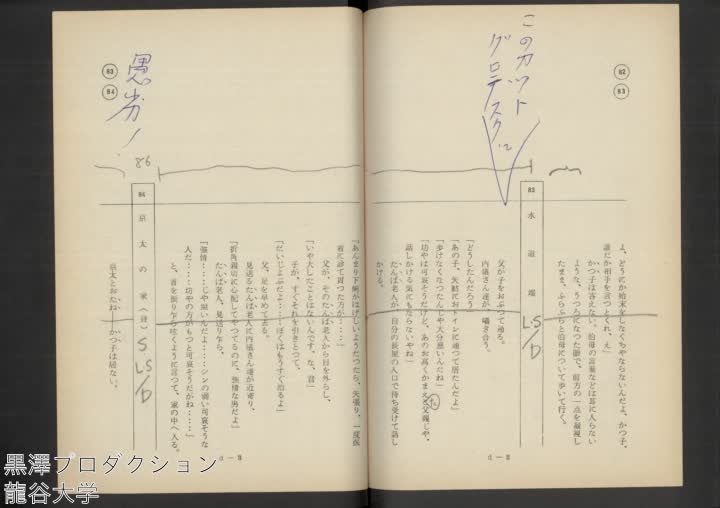 82
83
このカット
グロテスクに
よ、どうにか始末をしなくちやならないんだよ、かつ子、
誰だか相手を言つとくれ、え」
かつ子は答えない。伯母の言葉などは耳に入らない
ような、うつろになつた眼で、前方の一点を凝視し
たまま、ふらふらと伯母について歩いて行く。
83 水道端
LS/D
父が子をおぶつて通る。
内儀さん達が、囁き合う。
「どうしたんだろう」
「あの子、矢鱈におトイレに通つて居たんだよ」
「歩けなくなつたんじや大分悪いんだね」
「坊やは可哀そうだけど、あのお高くかまえた父親じや、
話しかける気にもならないやね」
たんば老人が、自分の長屋の入口で待ち受けて話し
かける。
d-2
83
84
愚劣!
「あんまり下痢がはげしいようだつたら、矢張り、一度医
者に診て貰つた方が……」
父が、そのたんば老人から目を外らし、
「いや大したことはないんです。な、君」
子が、すぐそれを引きとつて、
「だいじょぶだよ……ぼくはもうすぐ治るよ」
父、足を早めて去る。
見送るたんば老人に内儀さん達が近寄り、
「折角親切に心配してやつてるのに、強情な男だよ」
たんば老人、見送り乍ら、
「強情……じや無いんだよ……シンの弱い可哀そうな
人だ……坊やの方がもつと可哀そうだがね……」
と、首を振り乍ら呟くように言つて、家の中へ入る。
86
84 京太の家(昼)
S
LS/D
京太とおたね――かつ子は居ない。
d-3
黒澤プロダクション
龍谷大学